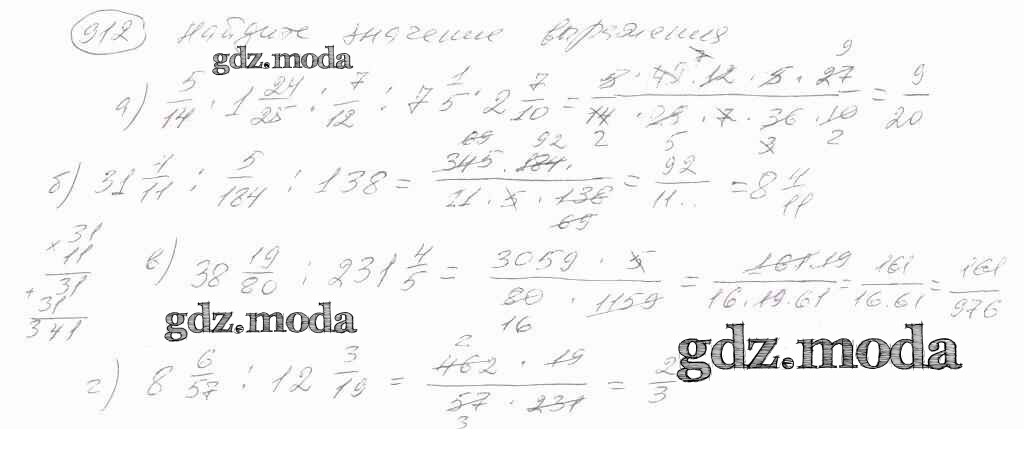 912 найдите значение выражения
gdz.moda
а) 5/14 · 1 24/25 : 7/12 : 7 1/5 · 2 7/10 = (5 · 49 · 12 · 5 · 27)/(14 · 25 · 7 · 36 · 10) = 9/20
б) 31 4/11 : 5/184 : 138 = (345 · 184)/(11 · 5 · 138) = 92/11 = 8 4/11
× 31
11
31
+ 31
341
в) 38 19/80 : 231 4/5 = (3059 · 5)/(80 · 1159) = (161 · 19)/(16 · 19 · 61) = 161/(16 · 61) = 161/976
gdz.moda
gdz.moda
г) 8 6/57 : 12 3/19 = (462 · 19)/(57 · 231) = 2/3